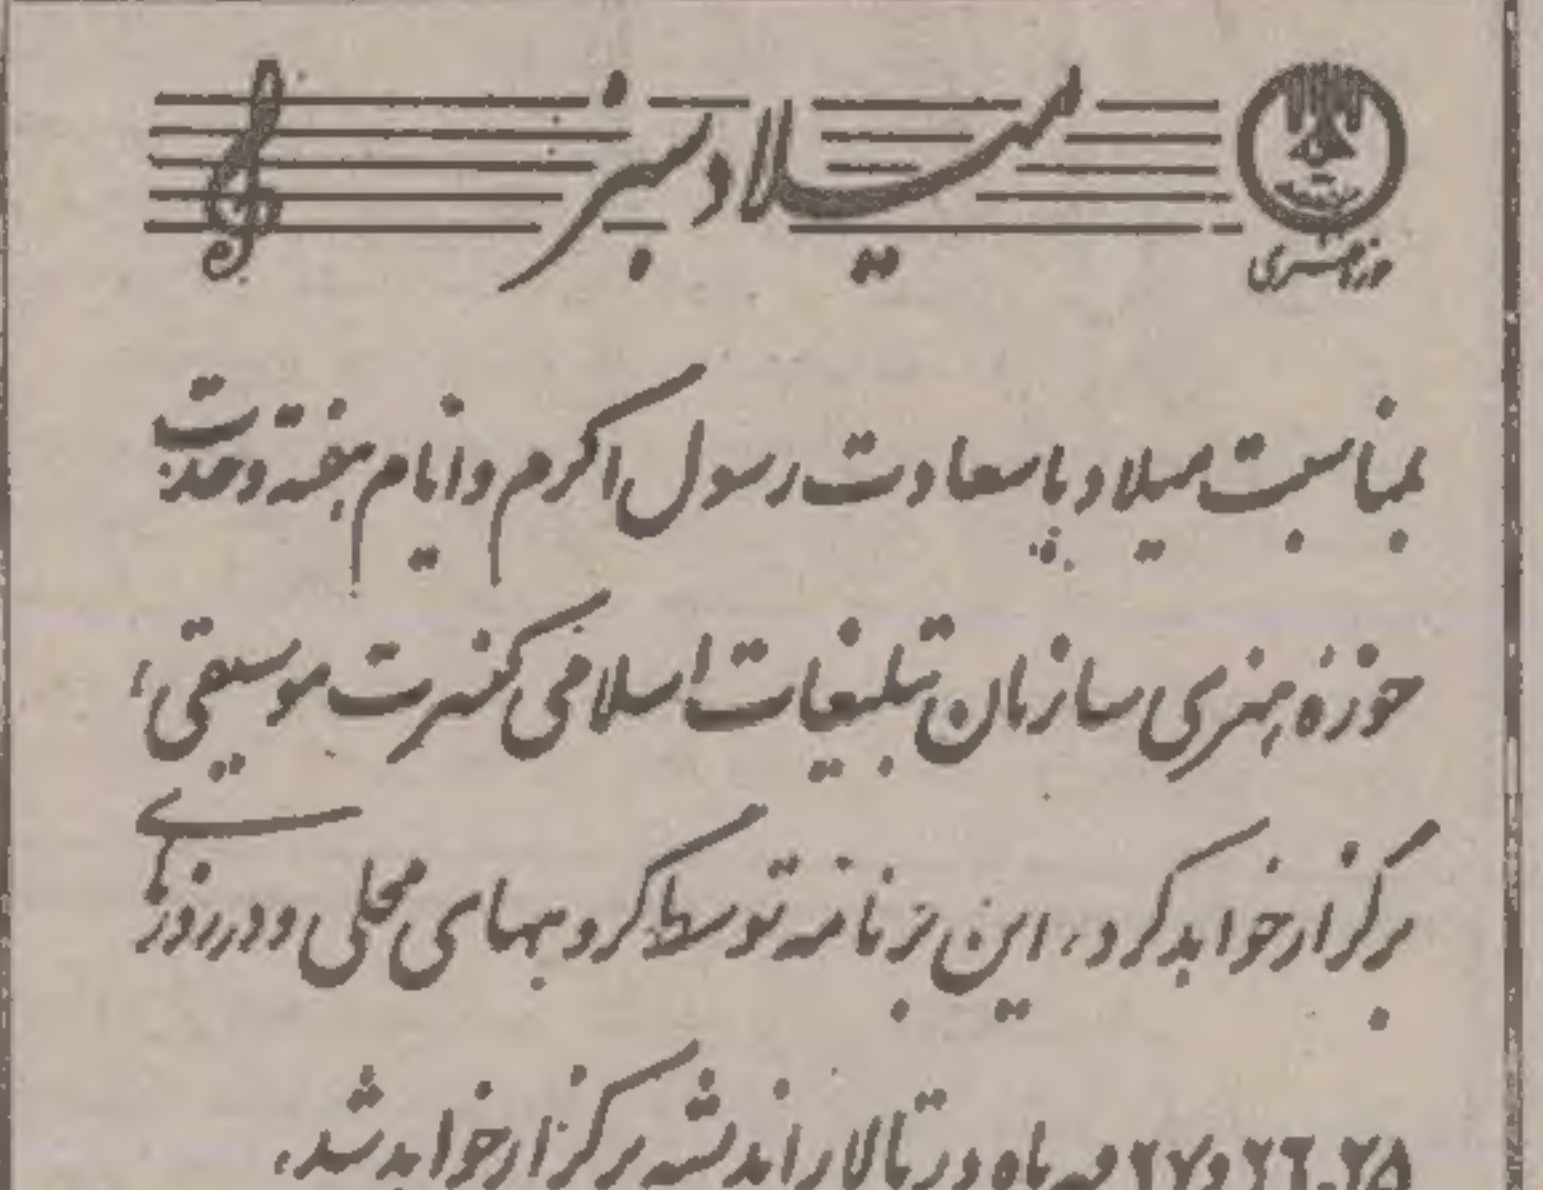 میلاد سبز
حوزه هنری
بمناسبت میلاد با سعادت رسول اکرم و ایام هفته وحدت
حوزه هنری سازمان تبلیغات اسلامی کنسرت موسیقی،
برگزار خواهد کرد، این برنامه توسط گروههای محلی و در روزهای
۲۵-۲۶ و ۲۷ مهرماه در تالار اندیشه برگزار خواهد شد.